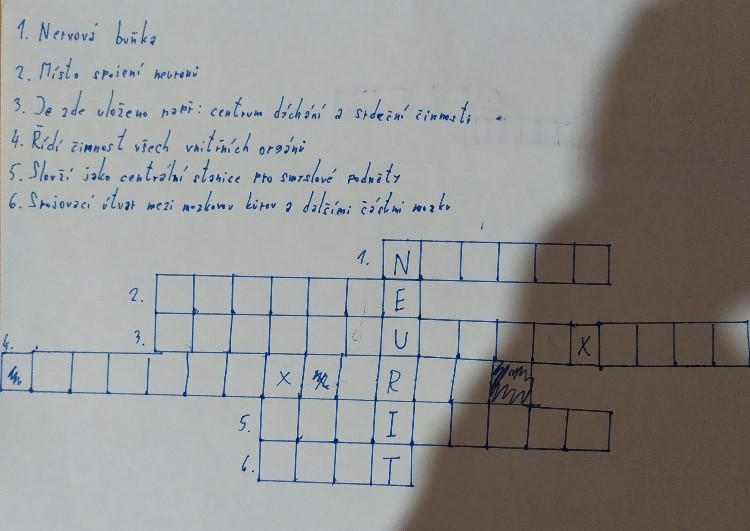 1. Nervová buňka
2. Místo spojení neuronů
3. Je zde uloženo např: centrum dýchání a srdeční činnosti
4. Řídí činnost všech vnitřních orgánů
5. Slouží jako centrální stanice pro smyslové podněty
6. Spojovací útvar mezi mozkovou kůrou a dalšími částmi mozku
1. N
2. E
3. U X
4. X R
5. I
6. T